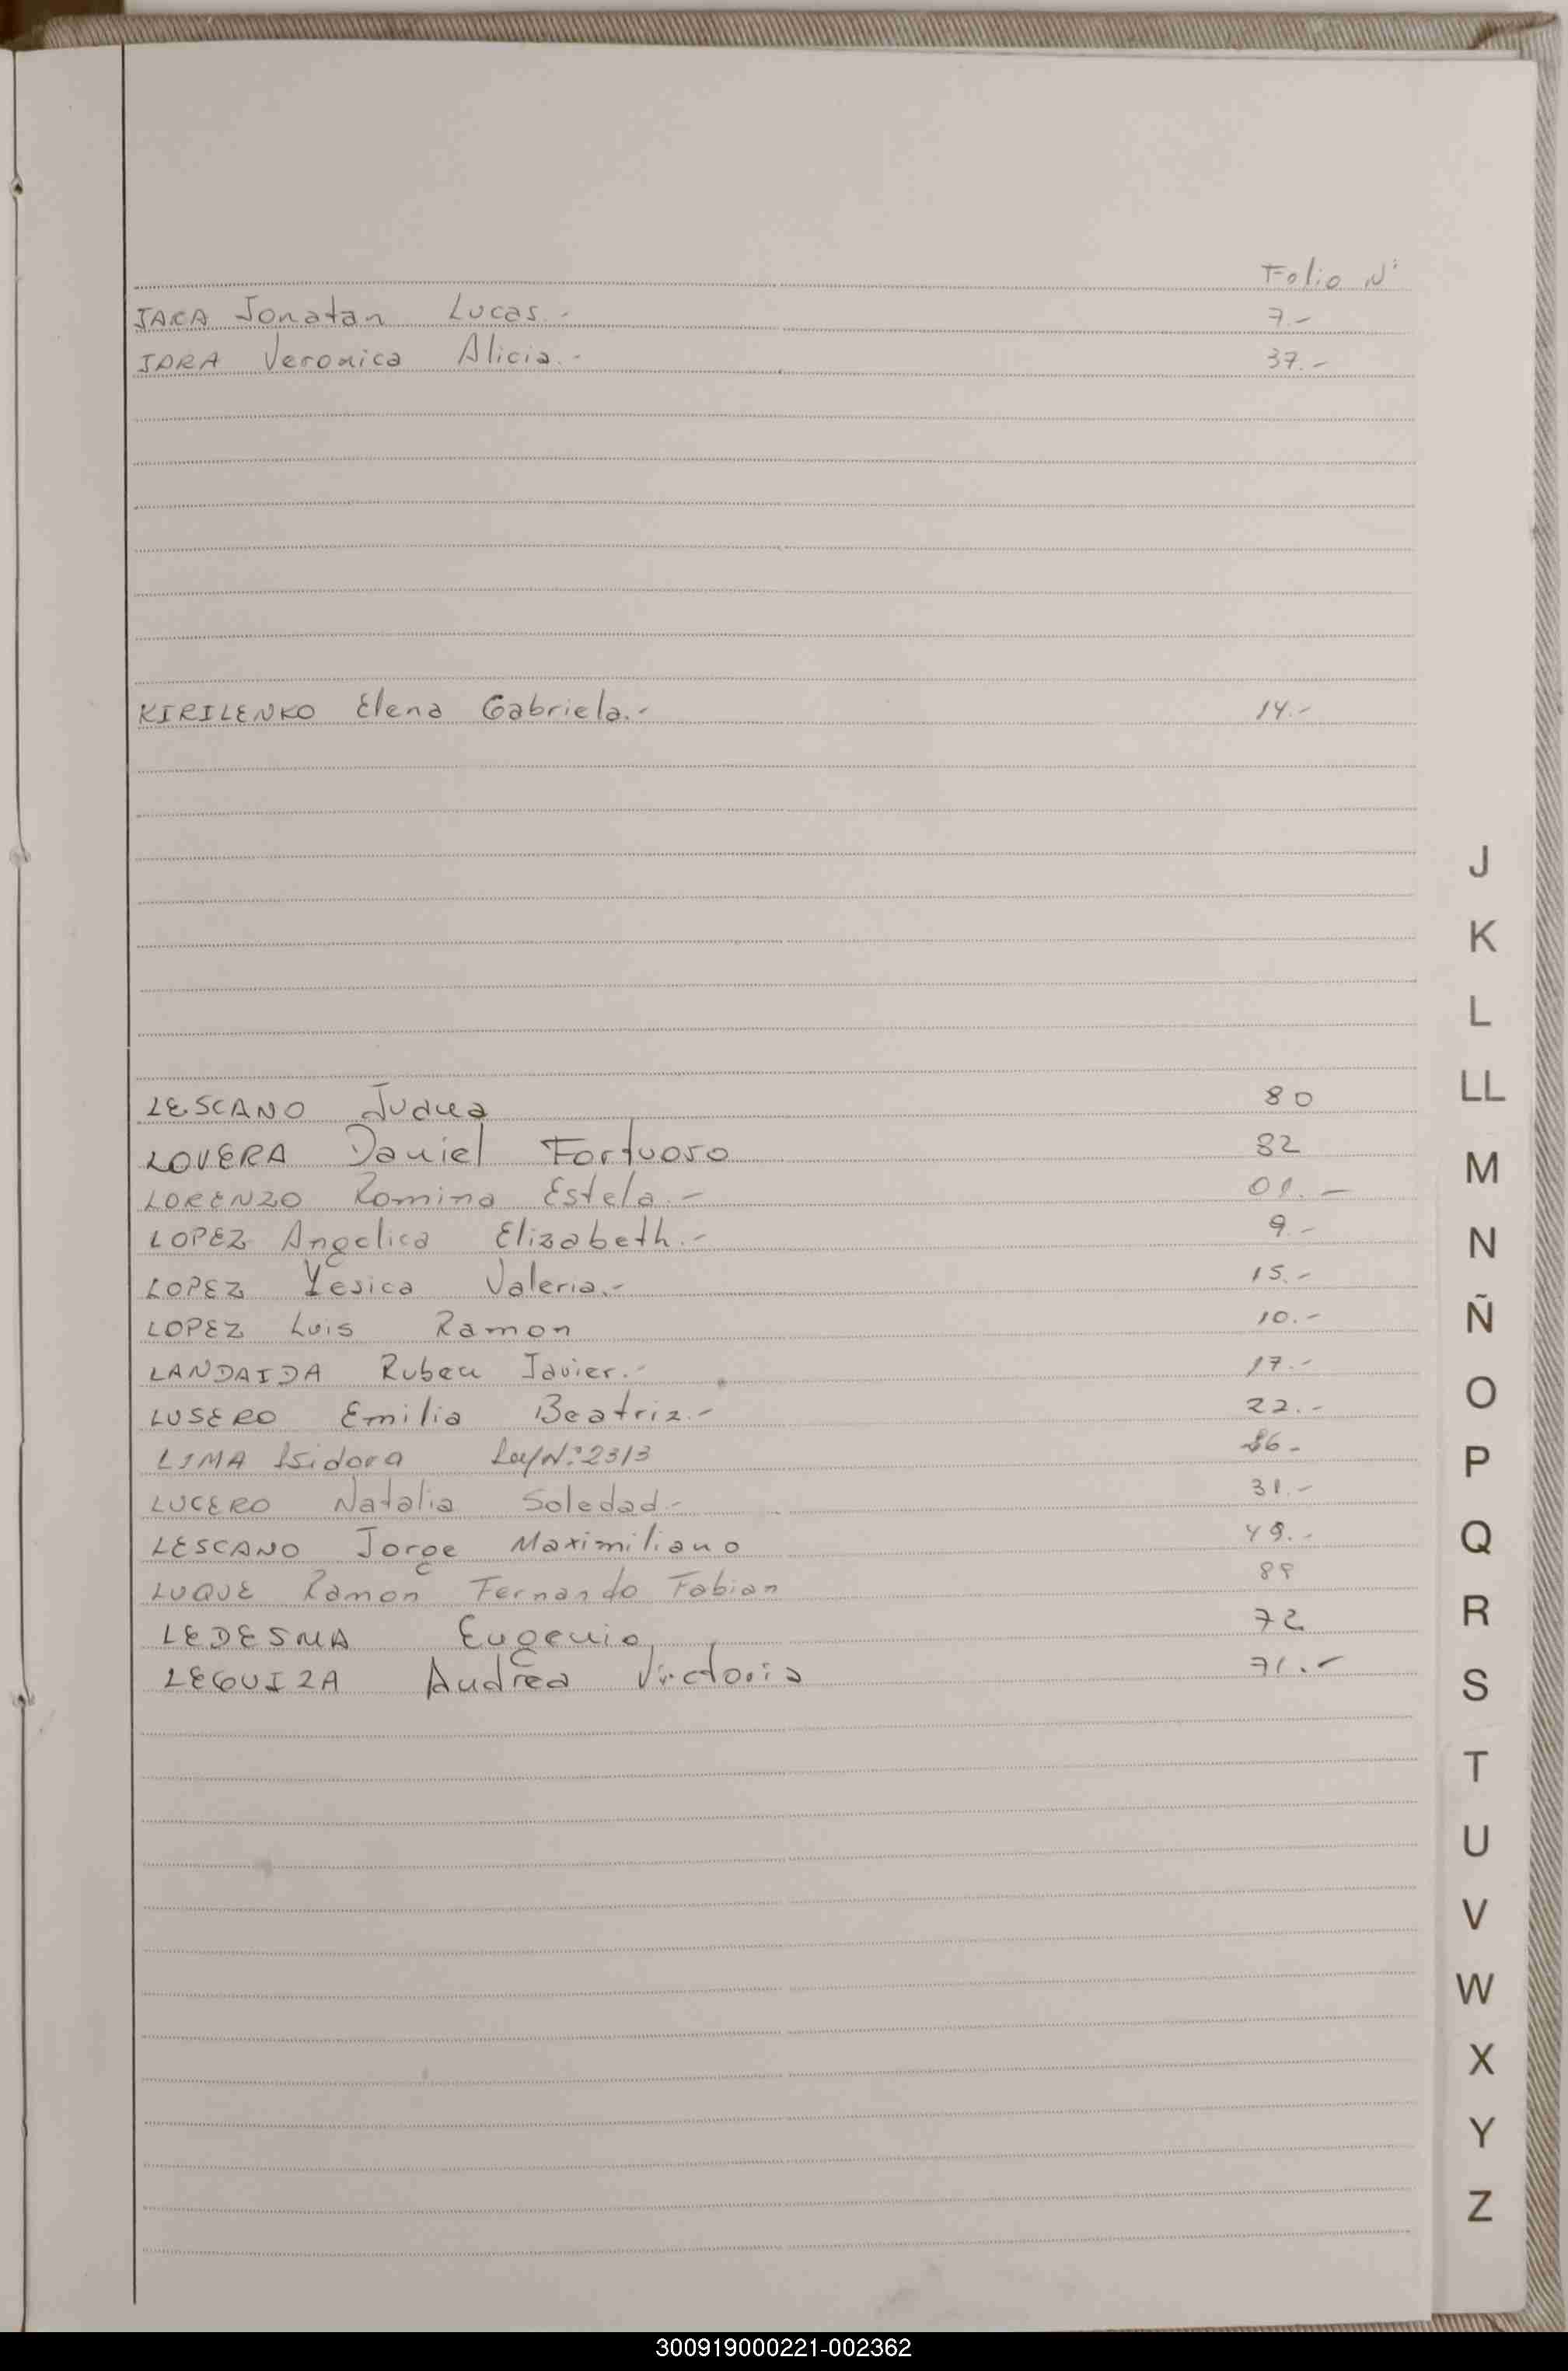 Folio Nº
JARA Jonatan Lucas.- 7.-
JARA Veronica Alicia.- 37.-
KIRILENKO Elena Gabriela.- 14.-
J
K
L
LESCANO 80
LL
LOVERA Daniel Fortuoso 82
M
LORENZO Romina Estela.- 01.-
LOPEZ Angelica Elizabeth.- 9.-
N
LOPEZ Yesica Valeria.- 15.-
LOPEZ Luis Ramon 10.-
Ñ
LANDAIDA Ruben Javier.- 17.-
O
LUSERO Emilia Beatriz.- 22.-
LIMA Isidora Ley Nº 2313 86-
P
LUCERO Natalia Soledad- 31.-
LESCANO Jorge Maximiliano 49.-
Q
LUQUE Ramon Fernando Fabian 89
R
LEDESMA Eugenio 72
LEGUIZA Andrea Victoria 71.-
S
T
U
V
W
X
Y
Z
300919000221-002362